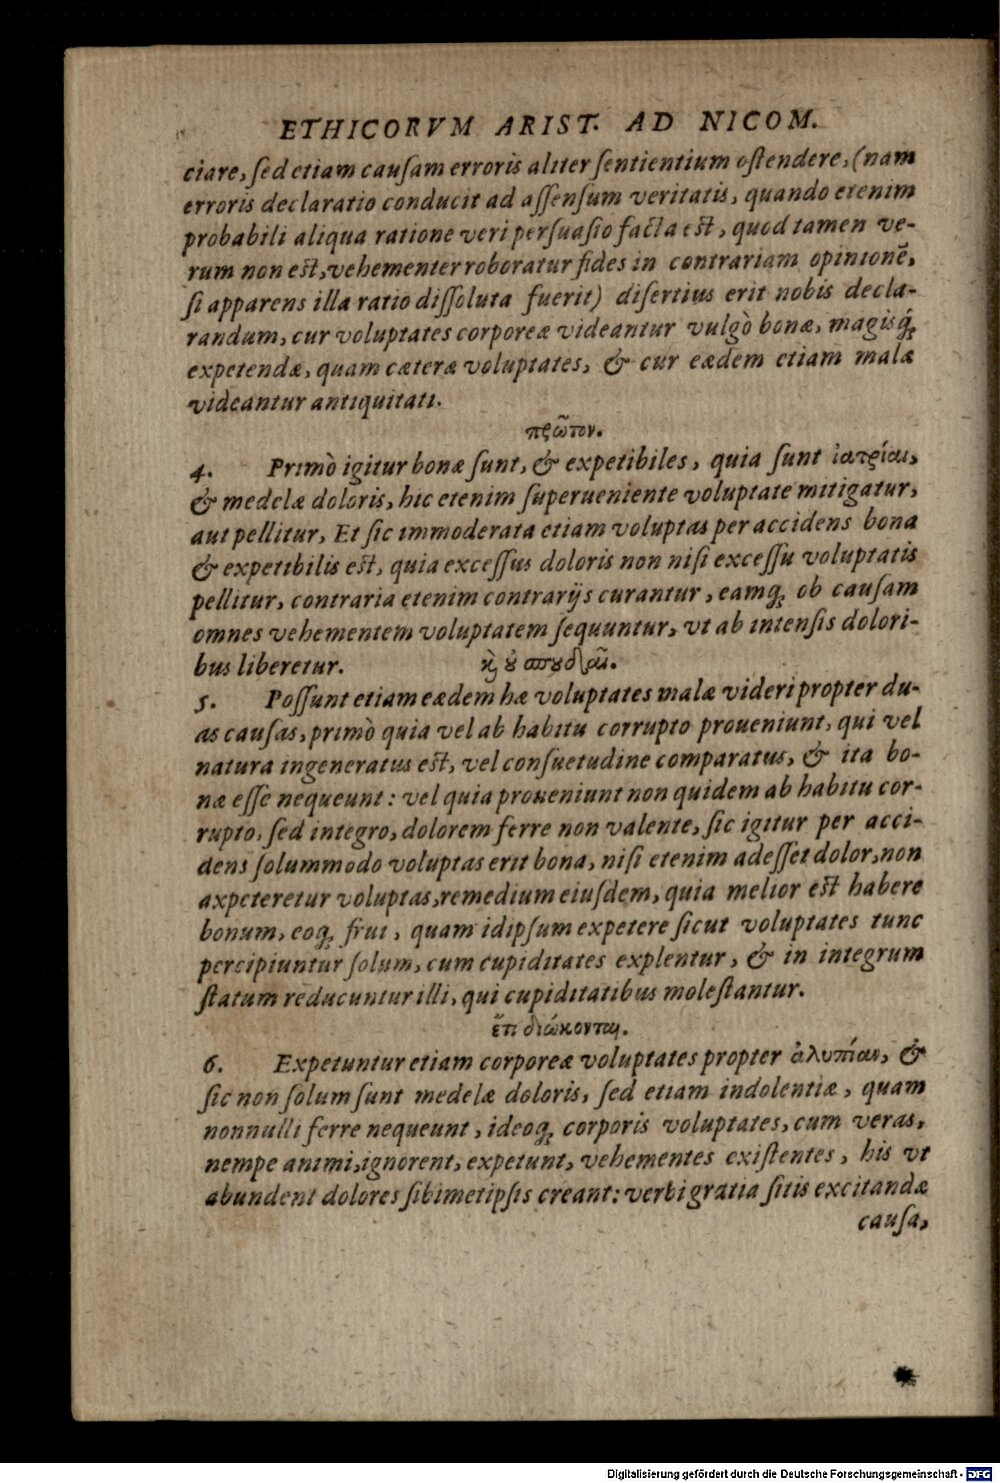 ETHICORVM ARIST. AD NICOM.
ciare, ſed etiam cauſam erroris aliter ſentientium oſtendere, (nam
erroris declaratio conducit ad aſſenſum veritatis, quando etenim
probabili aliqua ratione veri perſuaſio facta eſt, quod tamen ve-
rum non eſt, vehementer roboratur fides in contrariam opinionē,
ſi apparens illa ratio diſſoluta fuerit) diſertius erit nobis decla-
randum, cur voluptates corporeæ videantur vulgò bonæ, magisq́;
expetendæ, quam cæteræ voluptates, & cur eædem etiam malæ
videantur antiquitati.
πρῶτον.
4. Primò igitur bonæ ſunt, & expetibiles, quia ſunt ἰατρίαι,
& medelæ doloris, hic etenim ſuperueniente voluptate mitigatur,
aut pellitur, Et ſic immoderata etiam voluptas per accidens bona
& expetibilis eſt, quia exceſſus doloris non niſi exceſſu voluptatis
pellitur, contraria etenim contrarijs curantur, eamq; ob cauſam
omnes vehementem voluptatem ſequuntur, vt ab intenſis dolori-
bus liberetur. καὶ οὐ σπουδαῖ.
5. Poſſunt etiam eædem hæ voluptates malæ videri propter du-
as cauſas, primò quia vel ab habitu corrupto proueniunt, qui vel
natura ingeneratus eſt, vel conſuetudine comparatus, & ita bo-
næ eſſe nequeunt: vel quia proueniunt non quidem ab habitu cor-
rupto, ſed integro, dolorem ferre non valente, ſic igitur per acci-
dens ſolummodo voluptas erit bona, niſi etenim adeſſet dolor, non
axpeteretur voluptas, remedium eiuſdem, quia melior eſt habere
bonum, eoq; frui, quam idipſum expetere ſicut voluptates tunc
percipiuntur ſolum, cum cupiditates explentur, & in integrum
ſtatum reducuntur illi, qui cupiditatibus moleſtantur.
ἔτι διώκονται.
6. Expetuntur etiam corporeæ voluptates propter ἀλυπίαν, &
ſic non ſolum ſunt medelæ doloris, ſed etiam indolentiæ, quam
nonnulli ferre nequeunt, ideoq; corporis voluptates, cum veras,
nempe animi, ignorent, expetunt, vehementes exiſtentes, his vt
abundent dolores ſibimetipſis creant: verbi gratia ſitis excitandæ
cauſa,
Digitalisierung gefördert durch die Deutsche Forschungsgemeinschaft - DFG